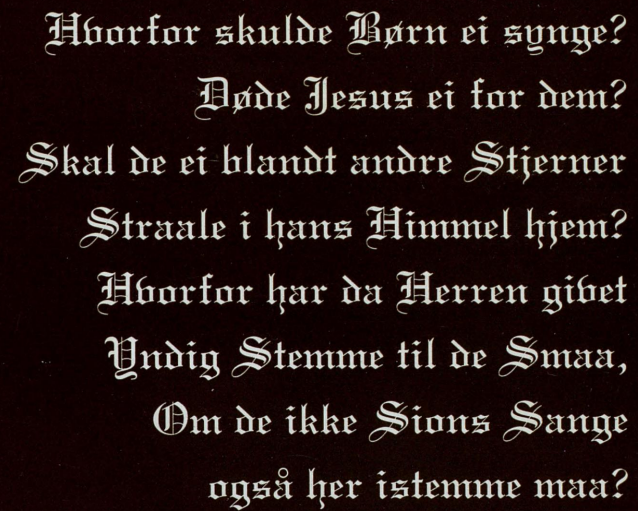 Hvorfor skulde Børn ei synge?
Døde Jesus ei for dem?
Skal de ei blandt andre Stjerner
Straale i hans Himmel hjem?
Hvorfor har da Herren givet
Yndig Stemme til de Smaa,
Om de ikke Sions Sange
også her istemme maa?